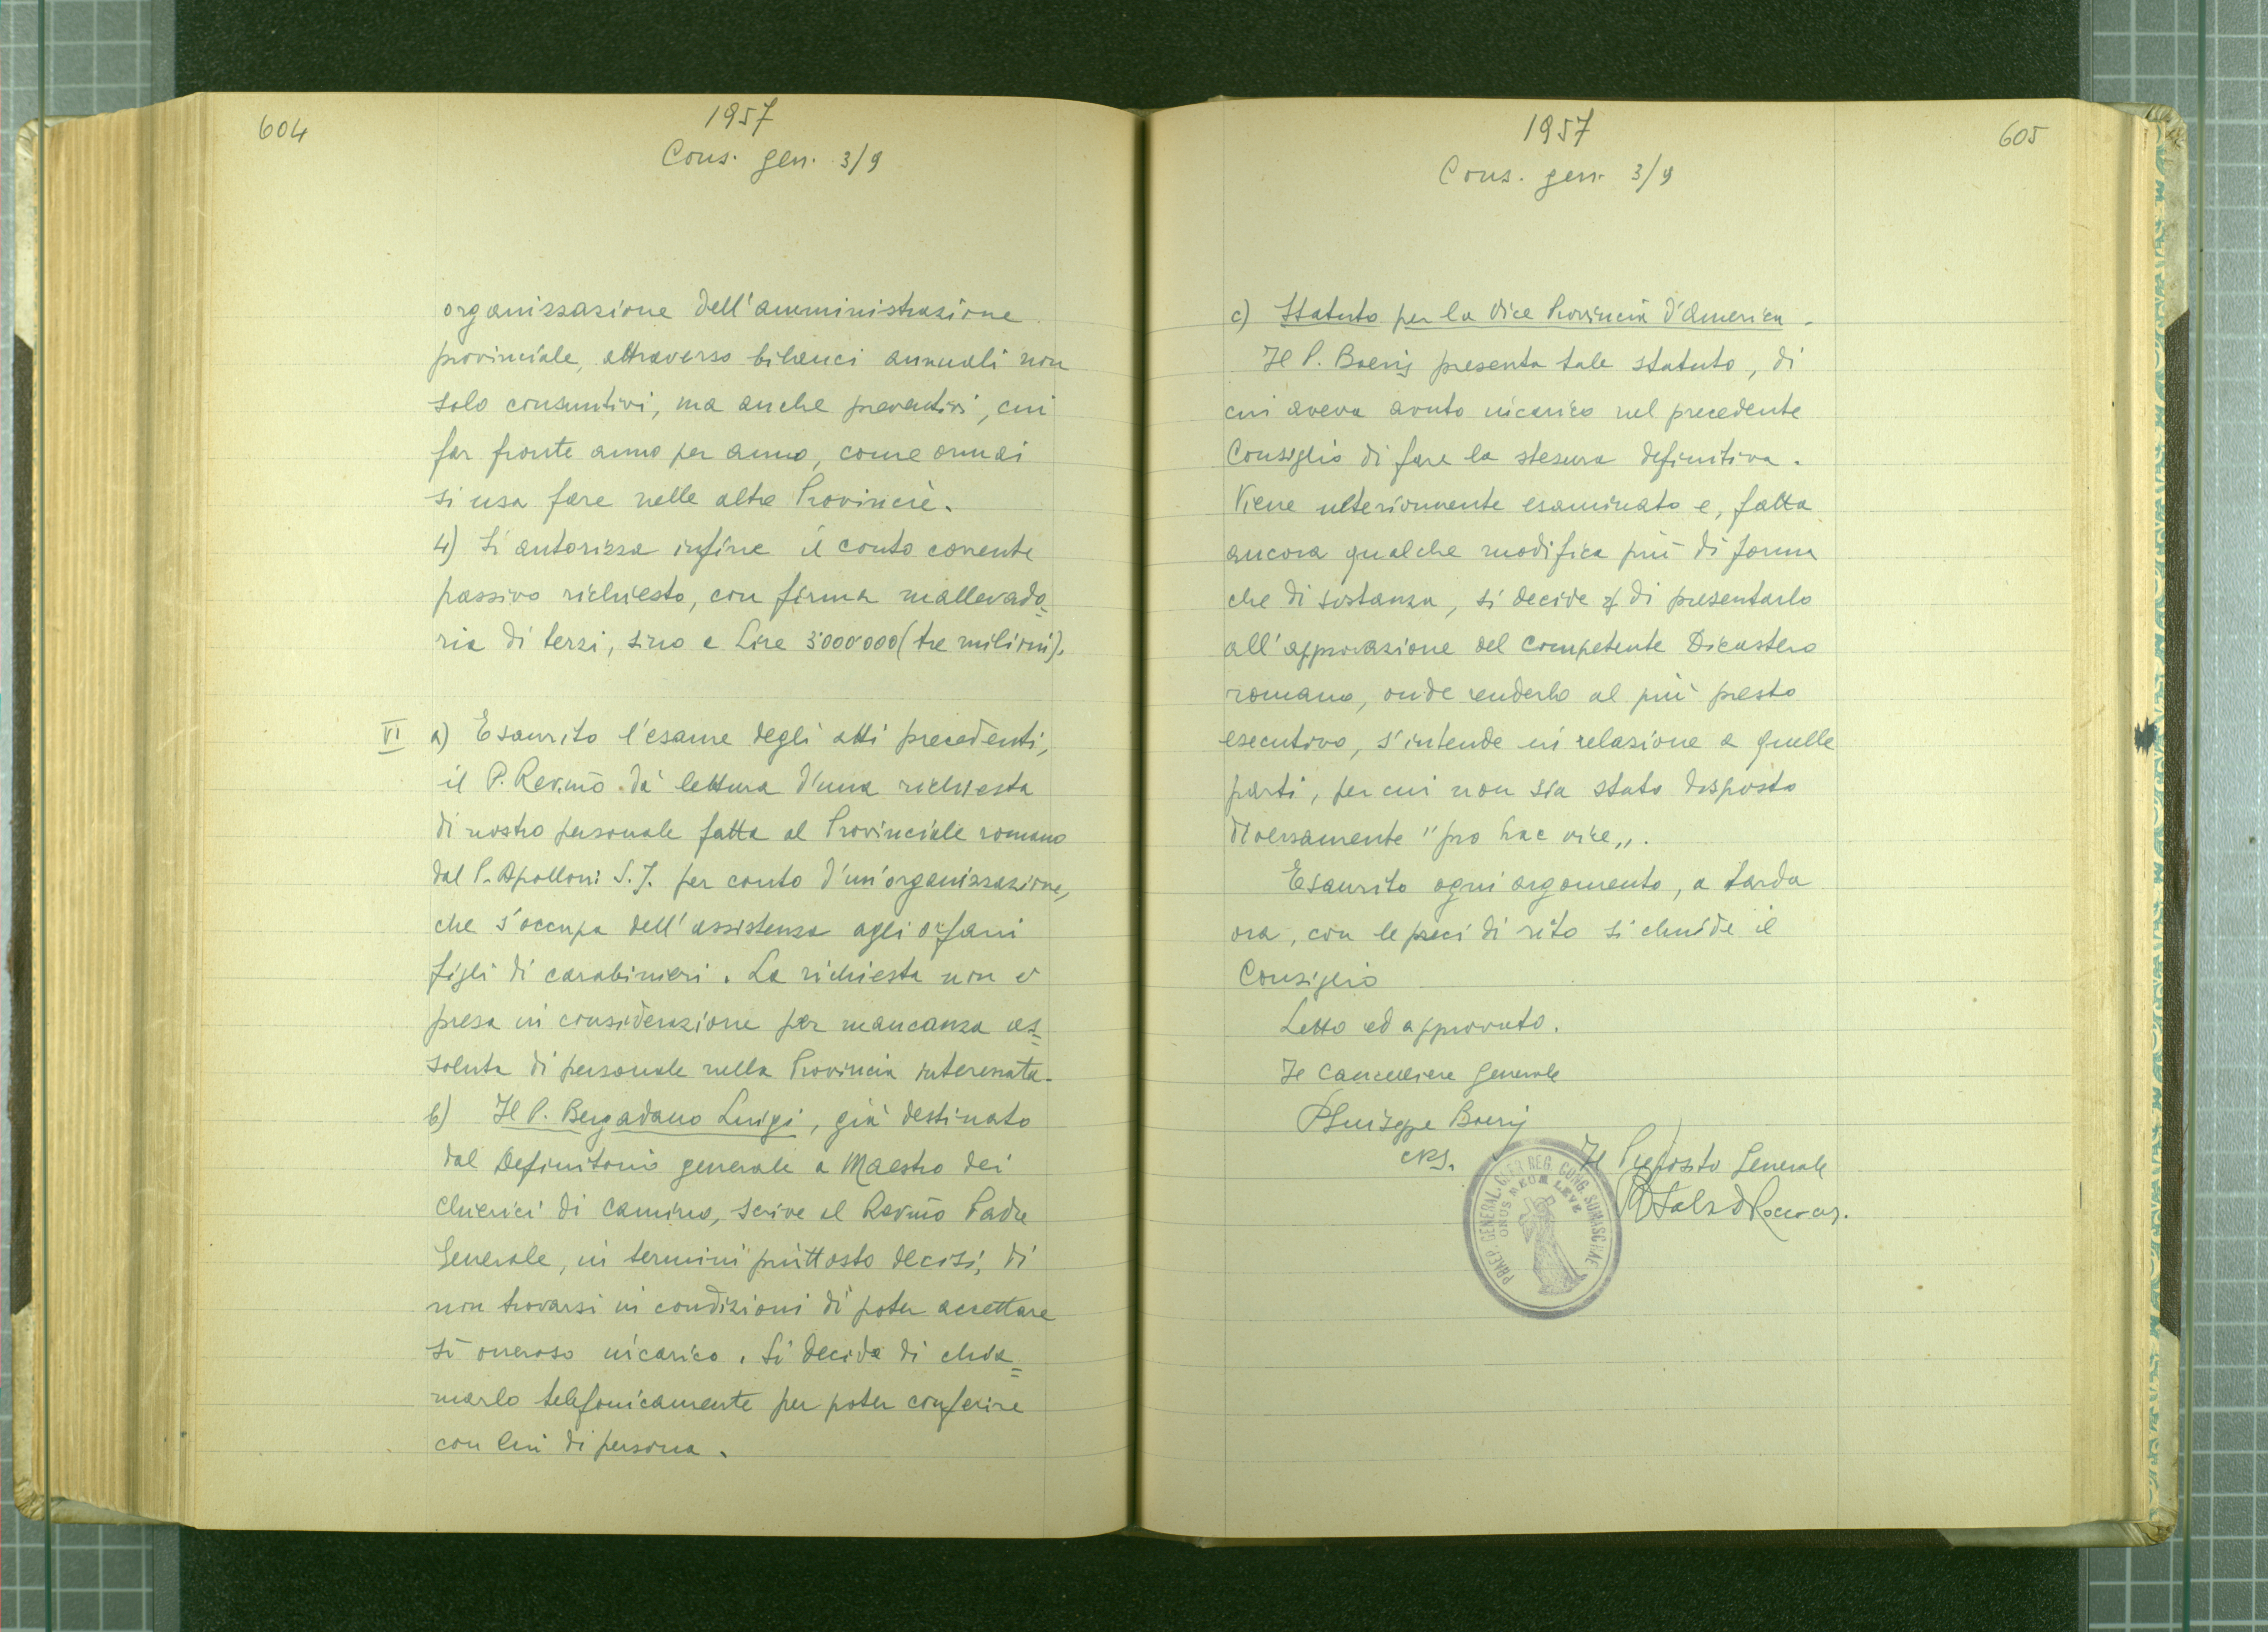 604
1957
Cons. gen. 3/9
organizzazione dell'amministrazione
provinciale, attraverso bilanci annuali non
solo consuntivi, ma anche preventivi, cui
far fronte anno per anno, come ormai
si usa fare nelle altre Provincie.
4) Si autorizza infine il conto corrente
passivo richiesto, con firma mallevado=
ria di terzi, sino a Lire 3'000'000 (tre milioni).
VI a) Esaurito l'esame degli atti precedenti,
il P. Rev.mo dà lettura d'una richiesta
di nostro personale fatta al Provinciale romano
dal P. Apolloni S.J. per conto d'un'organizzazione,
che s'occupa dell'assistenza agli orfani
figli di carabinieri. La richiesta non è
presa in considerazione per mancanza as=
soluta di personale nella Provincia interessata.
b) Il P. Bergadano Luigi, già destinato
dal Definitorio generale a Maestro dei
chierici di Camino, scrive al Rev.mo Padre
Generale, in termini piuttosto decisi, di
non trovarsi in condizioni di poter accettare
sì oneroso incarico. Si decide di chia=
marlo telefonicamente per poter conferire
con lui di persona.
1957
605
Cons. gen. 3/9
c) Statuto per la Vice Provincia d'America.
Il P. Boeris presenta tale statuto, di
cui aveva avuto incarico nel precedente
Consiglio di fare la stesura definitiva.
Viene ulteriormente esaminato e, fatta
ancora qualche modifica più di forma
che di sostanza, si decide di presentarlo
all'approvazione del competente Dicastero
romano, onde renderlo al più presto
esecutivo, s'intende in relazione a quelle
parti, per cui non sia stato disposto
diversamente "pro hac vice„.
Esaurito ogni argomento, a tarda
ora, con le preci di rito si chiude il
Consiglio
Letto ed approvato.
Il Cancelliere Generale
P Giuseppe Boeris
crs.
Il Preposto Generale
PRAEP. GENERAL. CLER. REG. CONG. SOMASCHAE
ONUS MEUM LEVE